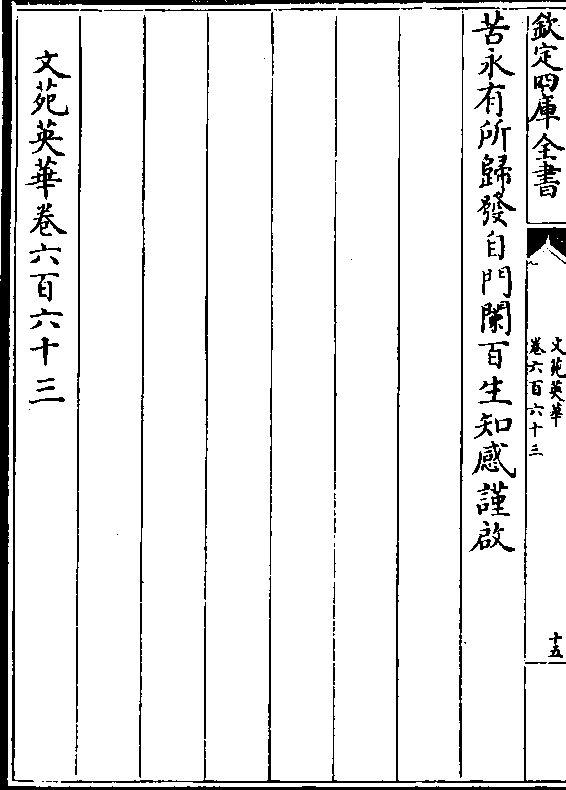 欽定四庫全書
文苑英華
卷六百六十三
十五
苦永有所歸發自門闌百生知感謹啟
文苑英華卷六百六十三